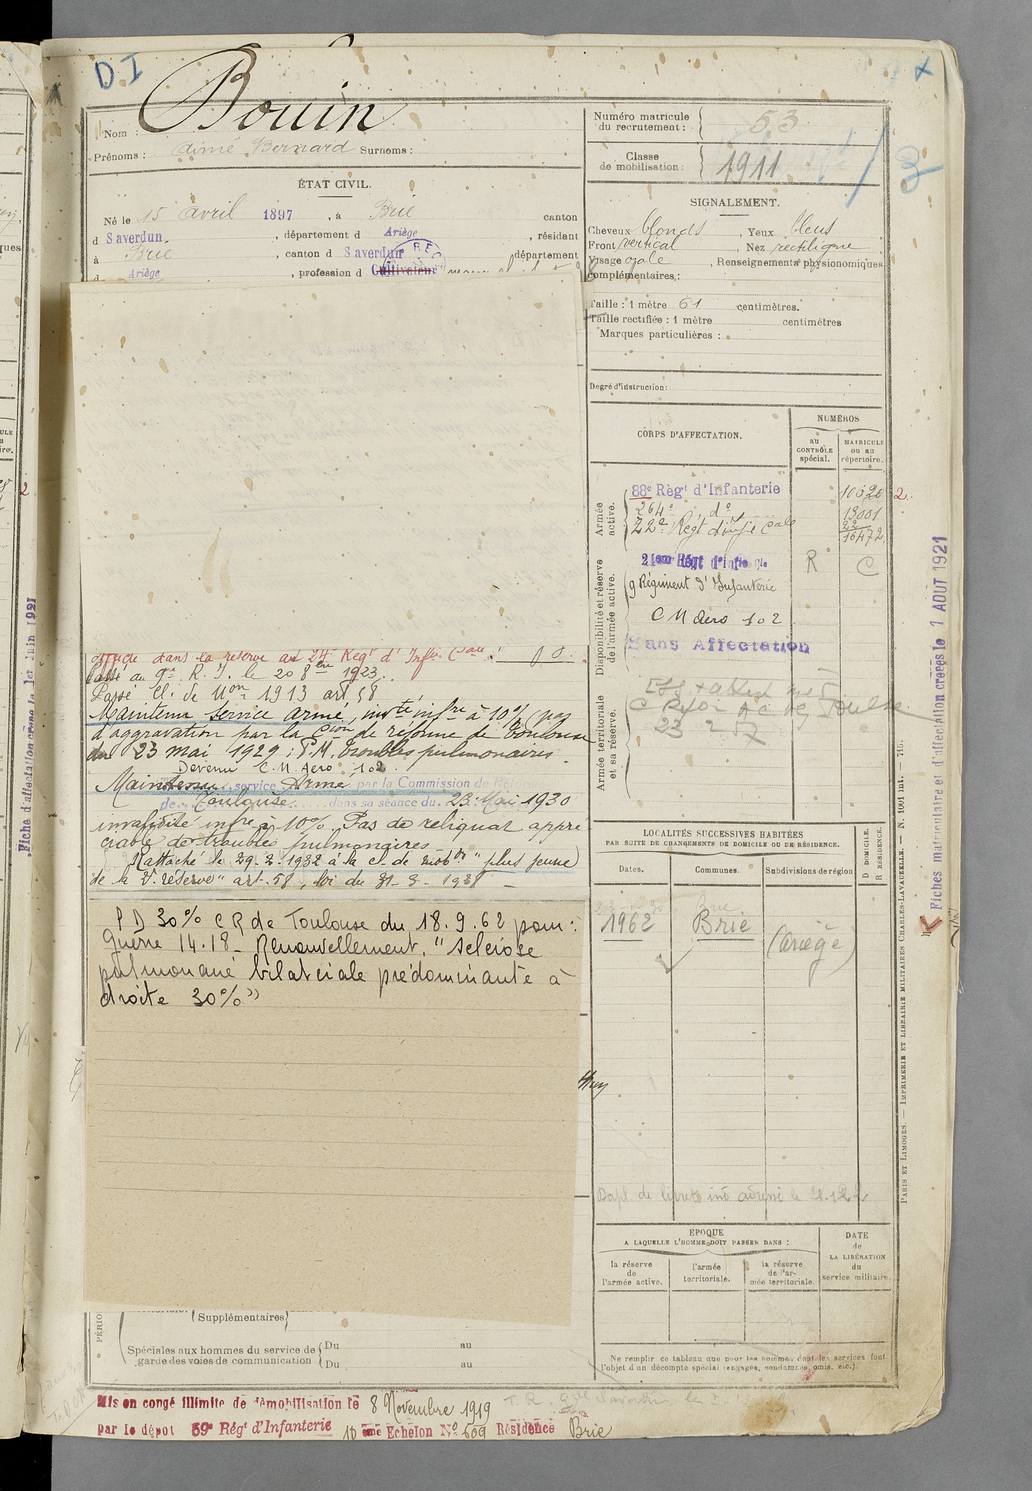 D I
Bouin
Nom :
Prénoms : Aimé Bernard Surnoms :
ÉTAT CIVIL.
Né le 15 avril 1897, à Brie canton
d Saverdun, département d Ariège, résidant
à Brie, canton d Saverdun département
d Ariège, profession d Cultivateur
Numéro matricule
du recrutement : 53
Classe
de mobilisation : 1911
SIGNALEMENT.
Cheveux blonds, Yeux bleus
Front vertical, Nez rectiligne
Visage ovale, Renseignements physionomiques
complémentaires :
Taille : 1 mètre 61 centimètres.
Taille rectifiée : 1 mètre centimètres
Marques particulières :
Degré d'instruction :
CORPS D'AFFECTATION.
NUMÉROS
au
CONTRÔLE
spécial.
MATRICULE
ou au
répertoire.
Armée
active.
88e Régt d'Infanterie
264e do 13001
22e Regt d'infie Cale 16472
Disponibilité et réserve
de l'armée active.
R C
9 Régiment d'Infanterie
C M Aero 102
Sans Affectation
Armée territoriale
et sa réserve.
affecté dans la reserve au 24e Regt d'Infie Cale
Passé au 9e R. I. le 20 8bre 1923.
Passé Cl. de Mon 1913 art 58
Maintenu service armé, invté infre à 10% (pas
d'aggravation par la Cion de réforme de Toulouse
du 23 mai 1929 : P.M. troubles pulmonaires.
Devenu C.M. Aero 102
Maintenu service Armé par la Commission de Réforme
de Toulouse dans sa séance du 23 Mai 1930
invalidité infre à 10% Pas de reliquat appré
ciable de troubles pulmonaires
Rattaché le 29.2.1932 à la cl. de mobon "plus jeune
de la 2e réserve" art. 58, loi du 31-3-1928
P D 30% CR de Toulouse du 18.9.62 pour :
Guerre 14.18 - Renouvellement. "Sclérose
pulmonaire bilatérale prédominante à
droite 30%"
LOCALITÉS SUCCESSIVES HABITÉES
PAR SUITE DE CHANGEMENTS DE DOMICILE OU DE RÉSIDENCE.
Dates. Communes. Subdivisions de région
D DOMICILE.
R RÉSIDENCE.
1962 Brie (Ariège)
Dupl. de livret ind adressé le
ÉPOQUE
A LAQUELLE L'HOMME DOIT PASSER DANS :
DATE
de
LA LIBÉRATION
du
service militaire.
la réserve
de
l'armée active.
l'armée
territoriale.
la réserve
de l'ar-
mée territoriale.
Supplémentaires
Spéciales aux hommes du service de
garde des voies de communication
Du au
Du au
Ne remplir ce tableau que pour les hommes dont les services font
l'objet d'un décompte spécial (engagés, condamnés, omis, etc.).
Mis en congé illimité de démobilisation le 8 Novembre 1919
par le dépôt 59e Régt d'Infanterie 10eme Echelon No 509 Résidence Brie
PARIS ET LIMOGES. — IMPRIMERIE ET LIBRAIRIE MILITAIRES CHARLES-LAVAUZELLE. — N. 1001 int. — 715.
Fiches matriculaire et d'affection créées le 1 AOUT 1921
Fiche d'affectation créée le 1er Juin 1921